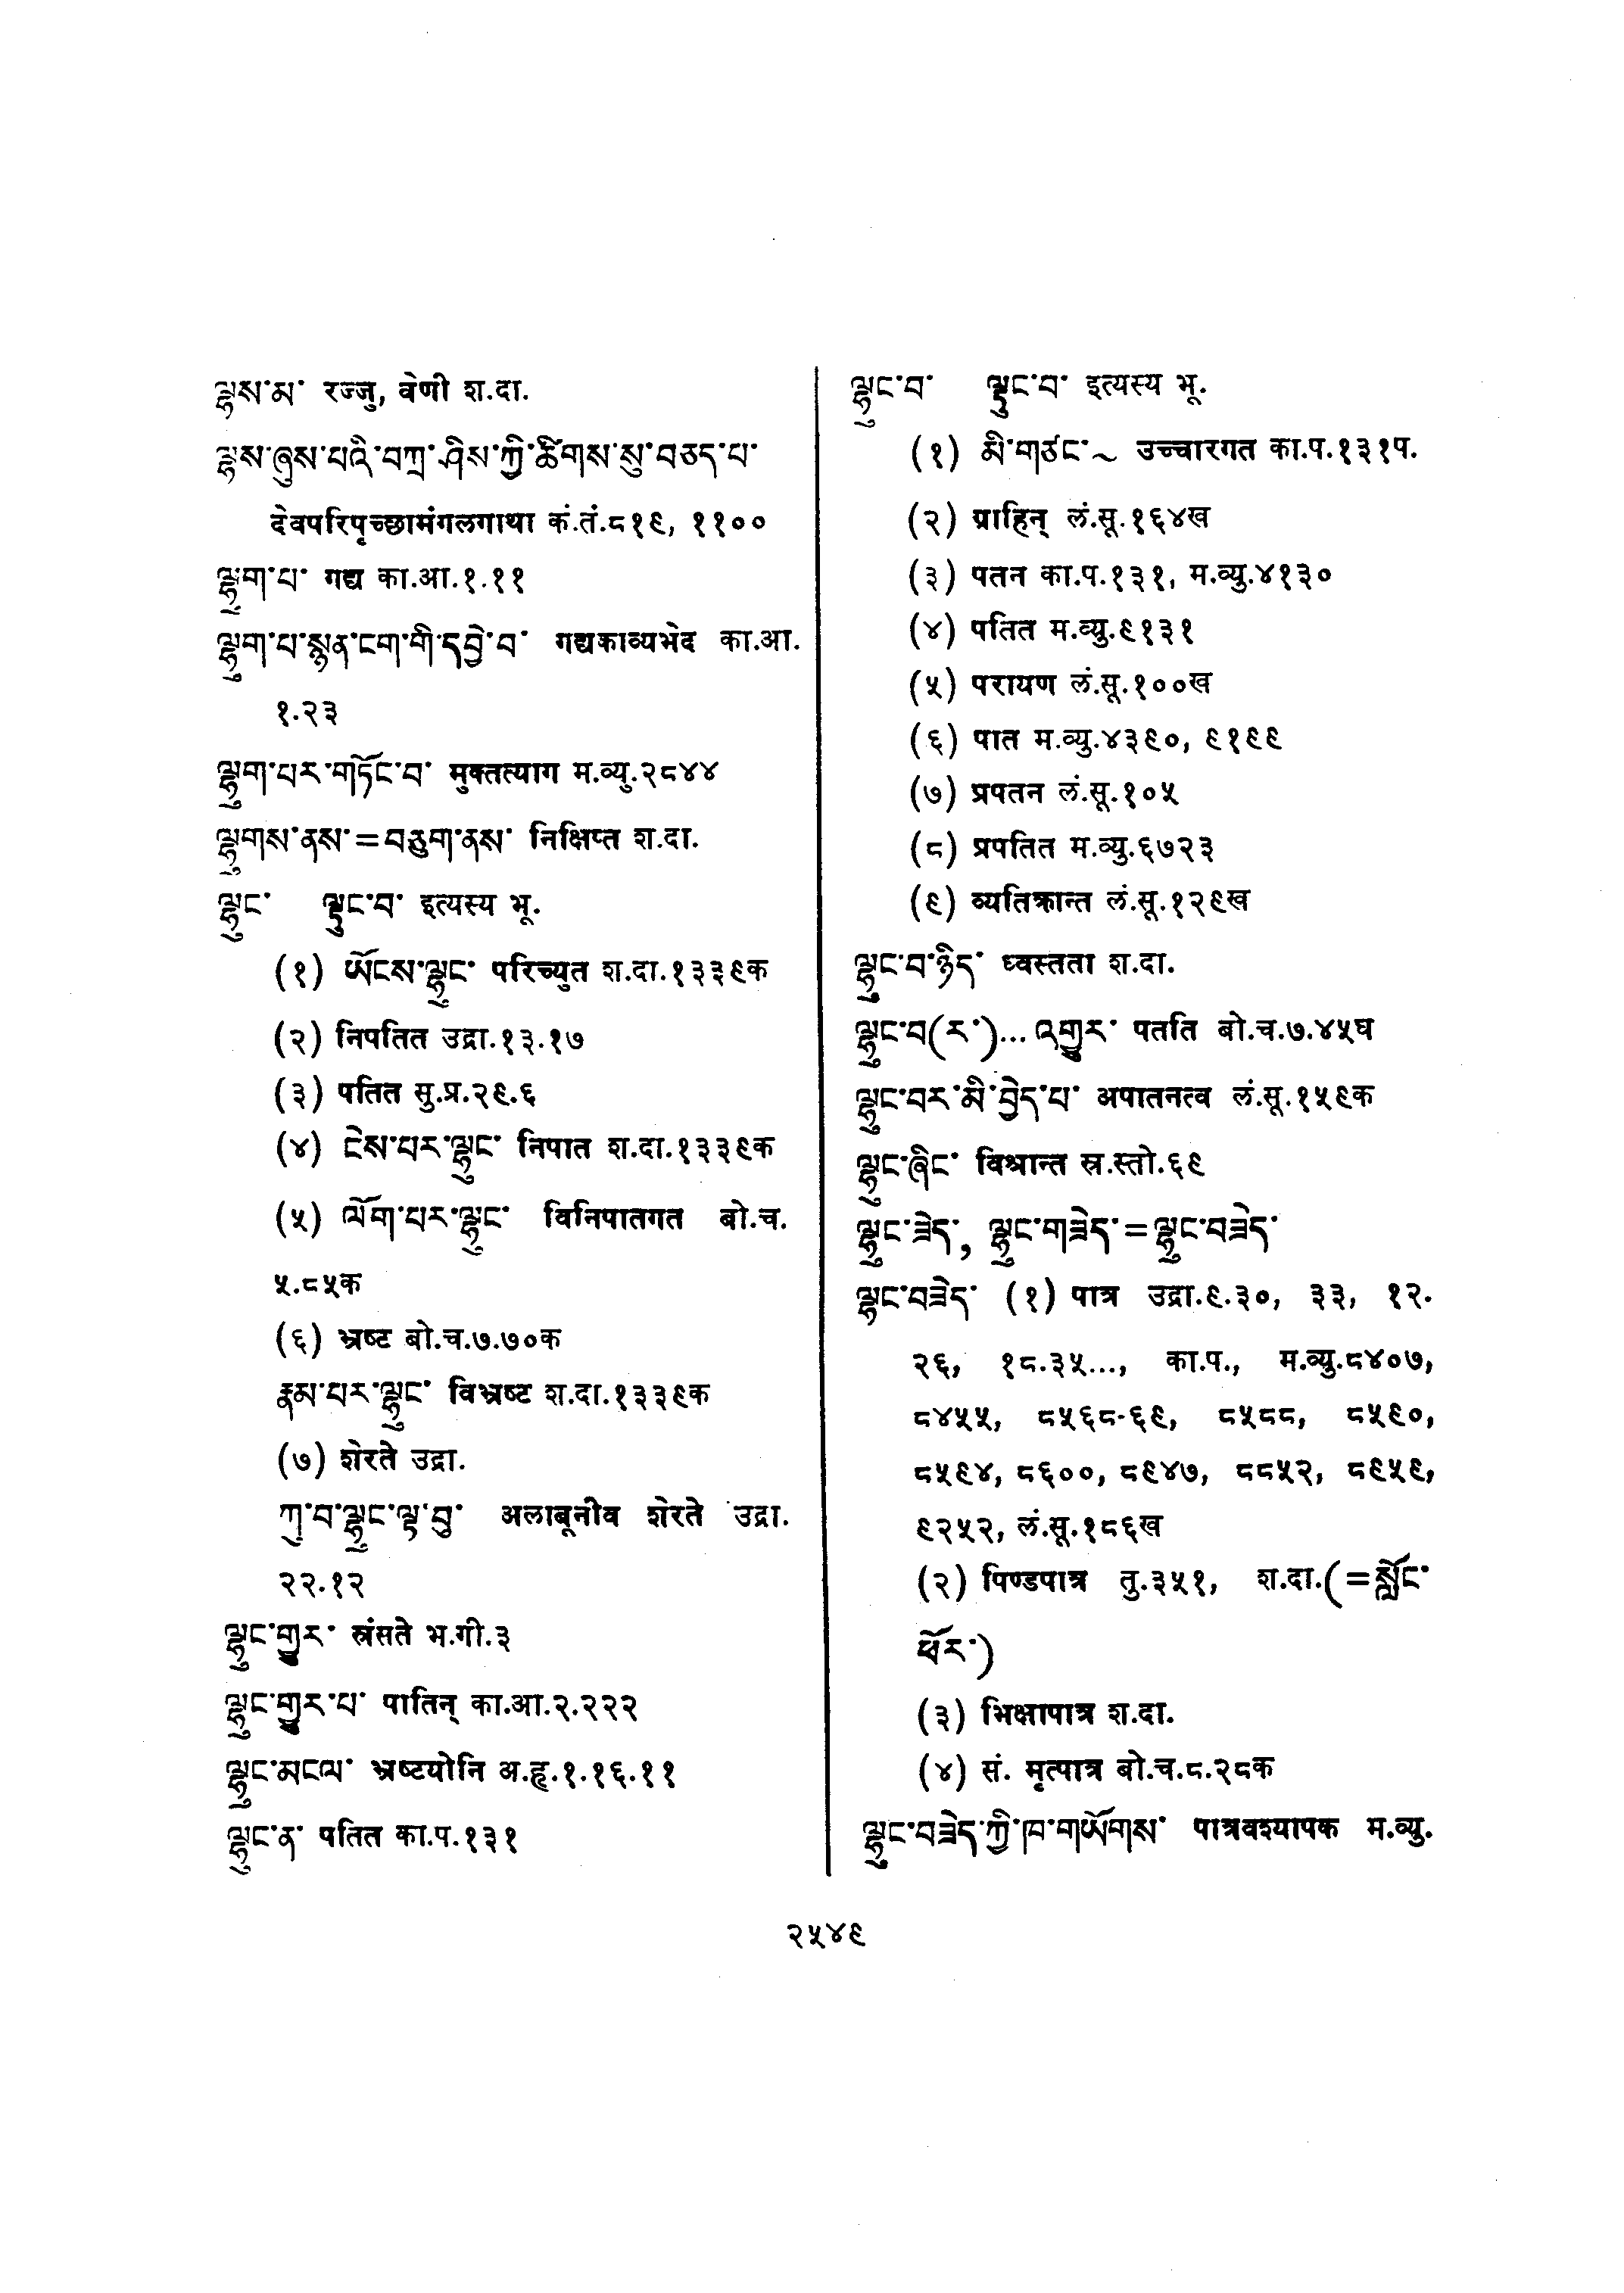 ལྷས་མ་ रज्जु, वेणी श.दा.
ལྷས་ཞུས་པའི་བཀྲ་ཤིས་ཀྱི་ཚིགས་སུ་བཅད་པ་
देवपरिपृच्छामंगलगाथा कं.तं.८१९, ११००
ལྷུག་པ་ गद्य का.आ.१.११
ལྷུག་པ་སྙན་ངག་གི་དབྱེ་བ་ गद्यकाव्यभेद का.आ.
१.२३
ལྷུག་པར་གཏོང་བ་ मुक्तत्याग म.व्यु.२८४४
ལྷུགས་ནས་=བཅུག་ནས་ निक्षिप्त श.दा.
ལྷུང་ ལྟུང་བ་ इत्यस्य भू.
(१) ཡོངས་ལྷུང་ परिच्युत श.दा.१३३९क
(२) निपतित उद्रा.१३.१७
(३) पतित सु.प्र.२९.६
(४) ངེས་པར་ལྷུང་ निपात श.दा.१३३९क
(५) ལོག་པར་ལྷུང་ विनिपातगत बो.च.
५.८५क
(६) भ्रष्ट बो.च.७.७०क
རྣམ་པར་ལྷུང་ विभ्रष्ट श.दा.१३३९क
(७) शेरते उद्रा.
ཀུ་བ་ལྷུང་ལྟ་བུ་ अलाबूनीव शेरते उद्रा.
२२.१२
ལྷུང་གྱུར་ स्रंसते भ.गी.३
ལྷུང་གྱུར་པ་ पातिन् का.आ.२.२२२
ལྷུང་མངལ་ भ्रष्टयोनि अ.हृ.१.१६.११
ལྷུང་ན་ पतित का.प.१३१
ལྷུང་བ་ ལྟུང་བ་ इत्यस्य भू.
(१) མི་གཙང་~ उच्चारगत का.प.१३१प.
(२) प्राहिन् लं.सू.१६४ख
(३) पतन का.प.१३१, म.व्यु.४१३०
(४) पतित म.व्यु.९१३१
(५) परायण लं.सू.१००ख
(६) पात म.व्यु.४३९०, ९१९९
(७) प्रपतन लं.सू.१०५
(८) प्रपतित म.व्यु.६७२३
(९) व्यतिक्रान्त लं.सू.१२९ख
ལྷུང་བ་ཉིད་ ध्वस्तता श.दा.
ལྷུང་བ(ར་)... འགྱུར་ पतति बो.च.७.४५घ
ལྷུང་བར་མི་བྱེད་པ་ अपातनत्व लं.सू.१५९क
ལྷུང་ཞིང་ विश्रान्त स्र.स्तो.६९
ལྷུང་ཟེད་, ལྷུང་གཟེད་=ལྷུང་བཟེད་
ལྷུང་བཟེད་ (१) पात्र उद्रा.९.३०, ३३, १२.
२६, १८.३५..., का.प., म.व्यु.८४०७,
८४५५, ८५६८-६९, ८५८८, ८५९०,
८५९४, ८६००, ८९४७, ८८५२, ८९५९,
९२५२, लं.सू.१८६ख
(२) पिण्डपात्र तु.३५१, श.दा.(=སློང་
ཕོར་)
(३) भिक्षापात्र श.दा.
(४) सं. मृत्पात्र बो.च.८.२८क
ལྷུང་བཟེད་ཀྱི་ཁ་གཡོགས་ पात्रवश्यापक म.व्यु.
२५४९